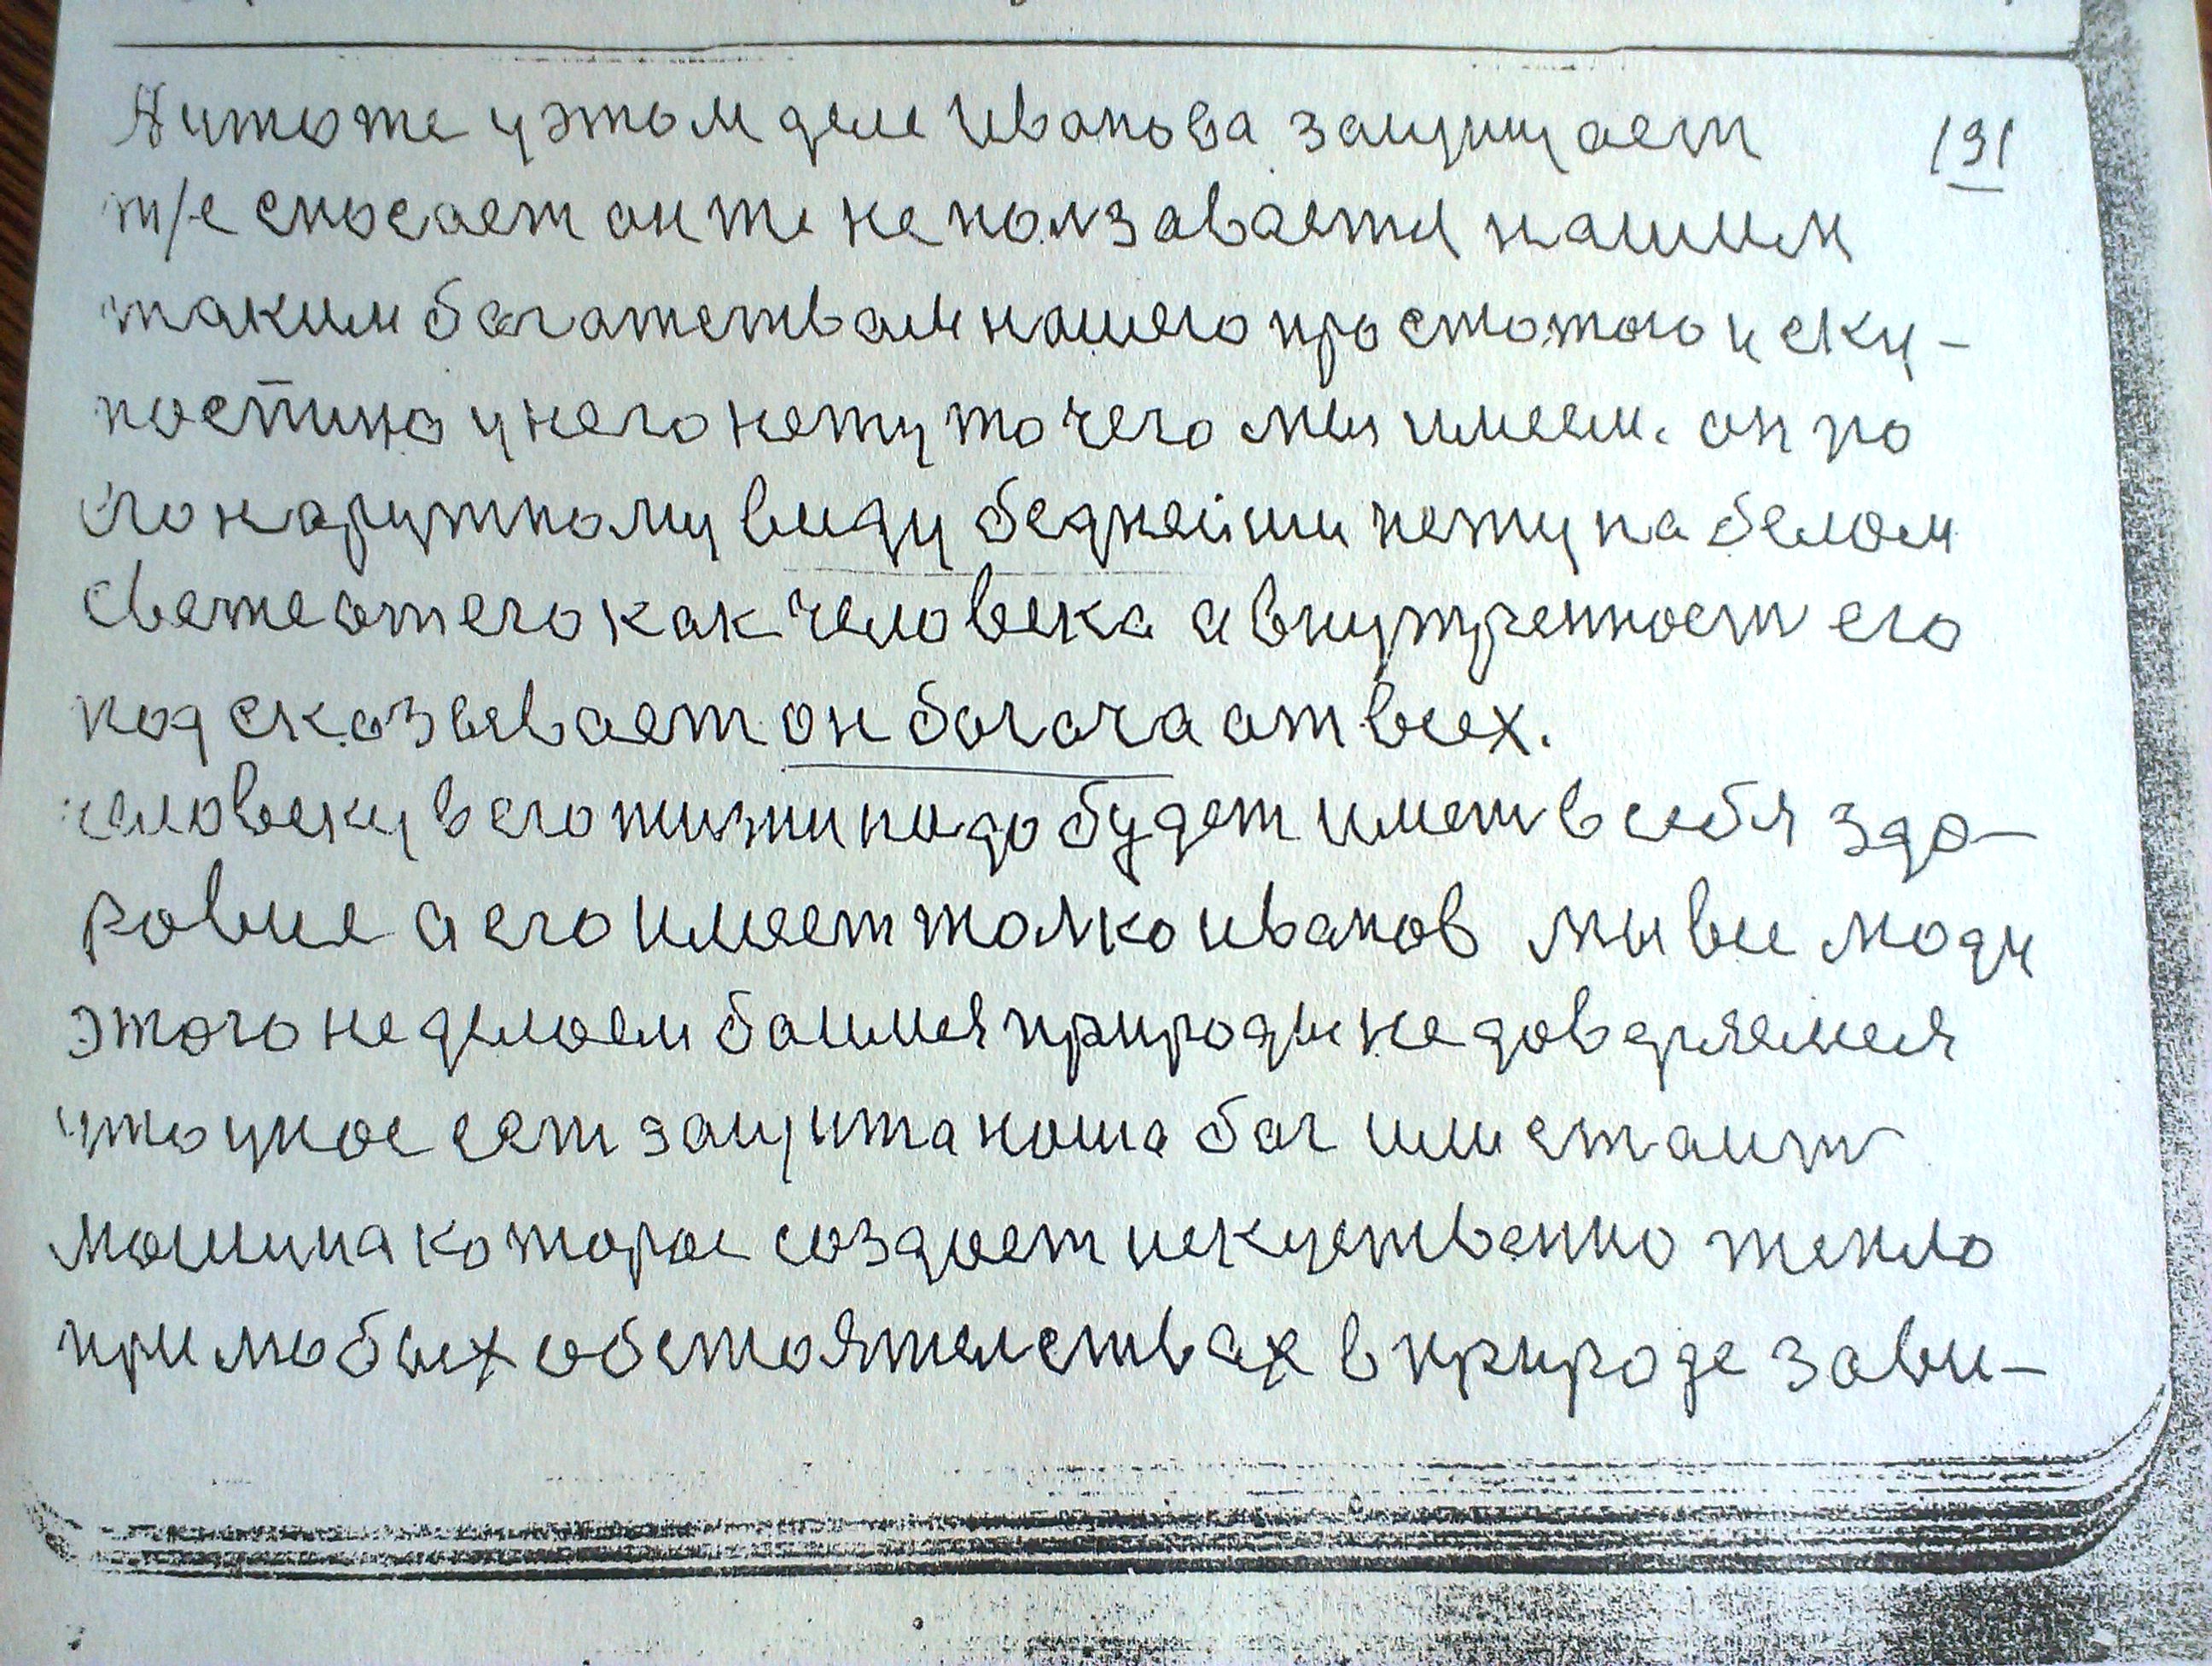 А што же у этом деле Иванова защищает 191
т/е спосает он же не ползавается нашим
таким багатством нашего простотого иску-
поствино у него нету то чего мы имеем. он по
его наружному виду беднейши нету на белом
свете от его как человека а внутренност его
подсказывает он богача от всех.
человеку в его жизни надо будет имет в себя здо-
ровие а его имеет толко иванов мы все люди
этого не делаем баимся природы не довдряемся
што у нас ест защита наша бог или стаит
машина которое создает искуственно тепло
при любых обстоятелствах в природе зави-